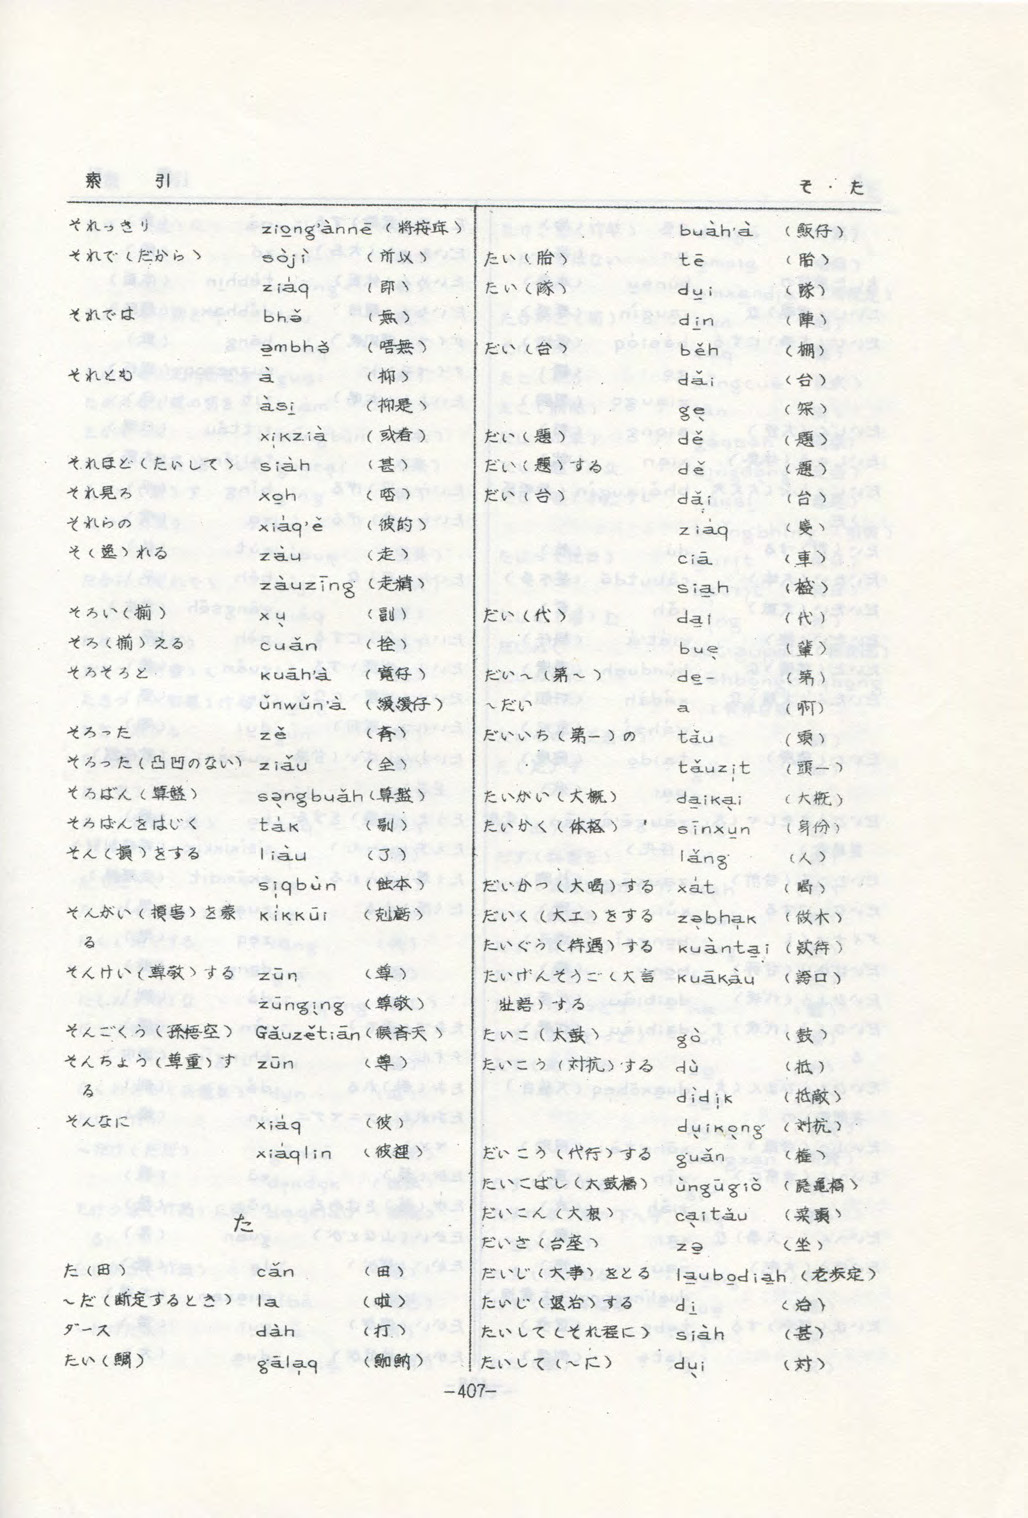 索　引
そ・た
それっきり　ziong'ànnē（將按哖）
それで（だからﾞ）　sòjì（所以）
ziáq（即）
それでは　bhə̌（無）
əmbhə̌（唔無）
それとも　à（抑）
àsi（抑是）
xikzià（或者）
それほど（たいして）　siàh（甚）
それ見ろ　xoh
それらの　xiáq'ě（彼的）
そ（逸）れる　zàu（走）
zàuzīng（走精）
そろい（揃）　xu（副）
そろ（揃）える　cuǎn（拴）
そろそろと　kuāh'à（寛仔）
ǔnwǔn'à（緩緩仔）
そろった　zě（斉）
そろった（凸凹のない）　ziǎu（全）
そろばん（算盤）　səngbuǎh（算盤）
そろばんをはじく　tàk
そん（損）をする　liàu（了）
siqbùn（蝕本）
そんがい（損害）を蒙　kikkūi（剋虧）
る
そんけい（尊敬）する　zūn（尊）
zūnging（尊敬）
そんごくう（孫悟空）　Gǎuzětiān（猴斉天）
そんちょう（尊重）す　zūn（尊）
る
そんなに　xiáq（彼）
xiáqlin（彼裡）
た
た（田）　cǎn（田）
～だ（断定するとき）　la（啦）
ダース　dàh（打）
たい（鯛）　gālaq（鉫魶）
buàh'à（飯仔）
たい（胎）　tē（胎）
たい（隊）　dui（隊）
din（陣）
だい（台）　běh（棚）
dǎi（台）
ge（架）
だい（題）　dě（題）
だい（題）する　dě（題）
だい（台）　dǎi（台）
ziáq（隻）
ciā（車）
siah
だい（代）　dai（代）
bue（輩）
だい～（第～）　de-（第）
～だい　a（啊）
だいいち（第一）の　tǎu（頭）
tǎuzit（頭一）
たいがい（大概）　daikai（大概）
たいかく（体格）　sīnxun（身份）
lǎng（人）
だいかつ（大喝）する　xát（喝）
だいく（大工）をする　zəbhak（做木）
たいぐう（待遇）する　kuàntai（欵待）
たいげんそうご（大言　kuākàu（誇口）
壯語）する
たいこ（太鼓）　gò（鼓）
たいこう（対抗）する　dù（抵）
dìdik（抵敵）
duikong（対抗）
だいこう（代行）する　guǎn（権）
たいこばし（太鼓橋）　ùngūgiò（隠亀橋）
だいこん（大根）　caitǎu（菜頭）
だいざ（台座）　zə（坐）
だいじ（大事）をとる　laubodiah（老歩定）
たいじ（退治）する　di（治）
たいして（それ程に）　siàh（甚）
たいして（～に）　dui（対）
-407-